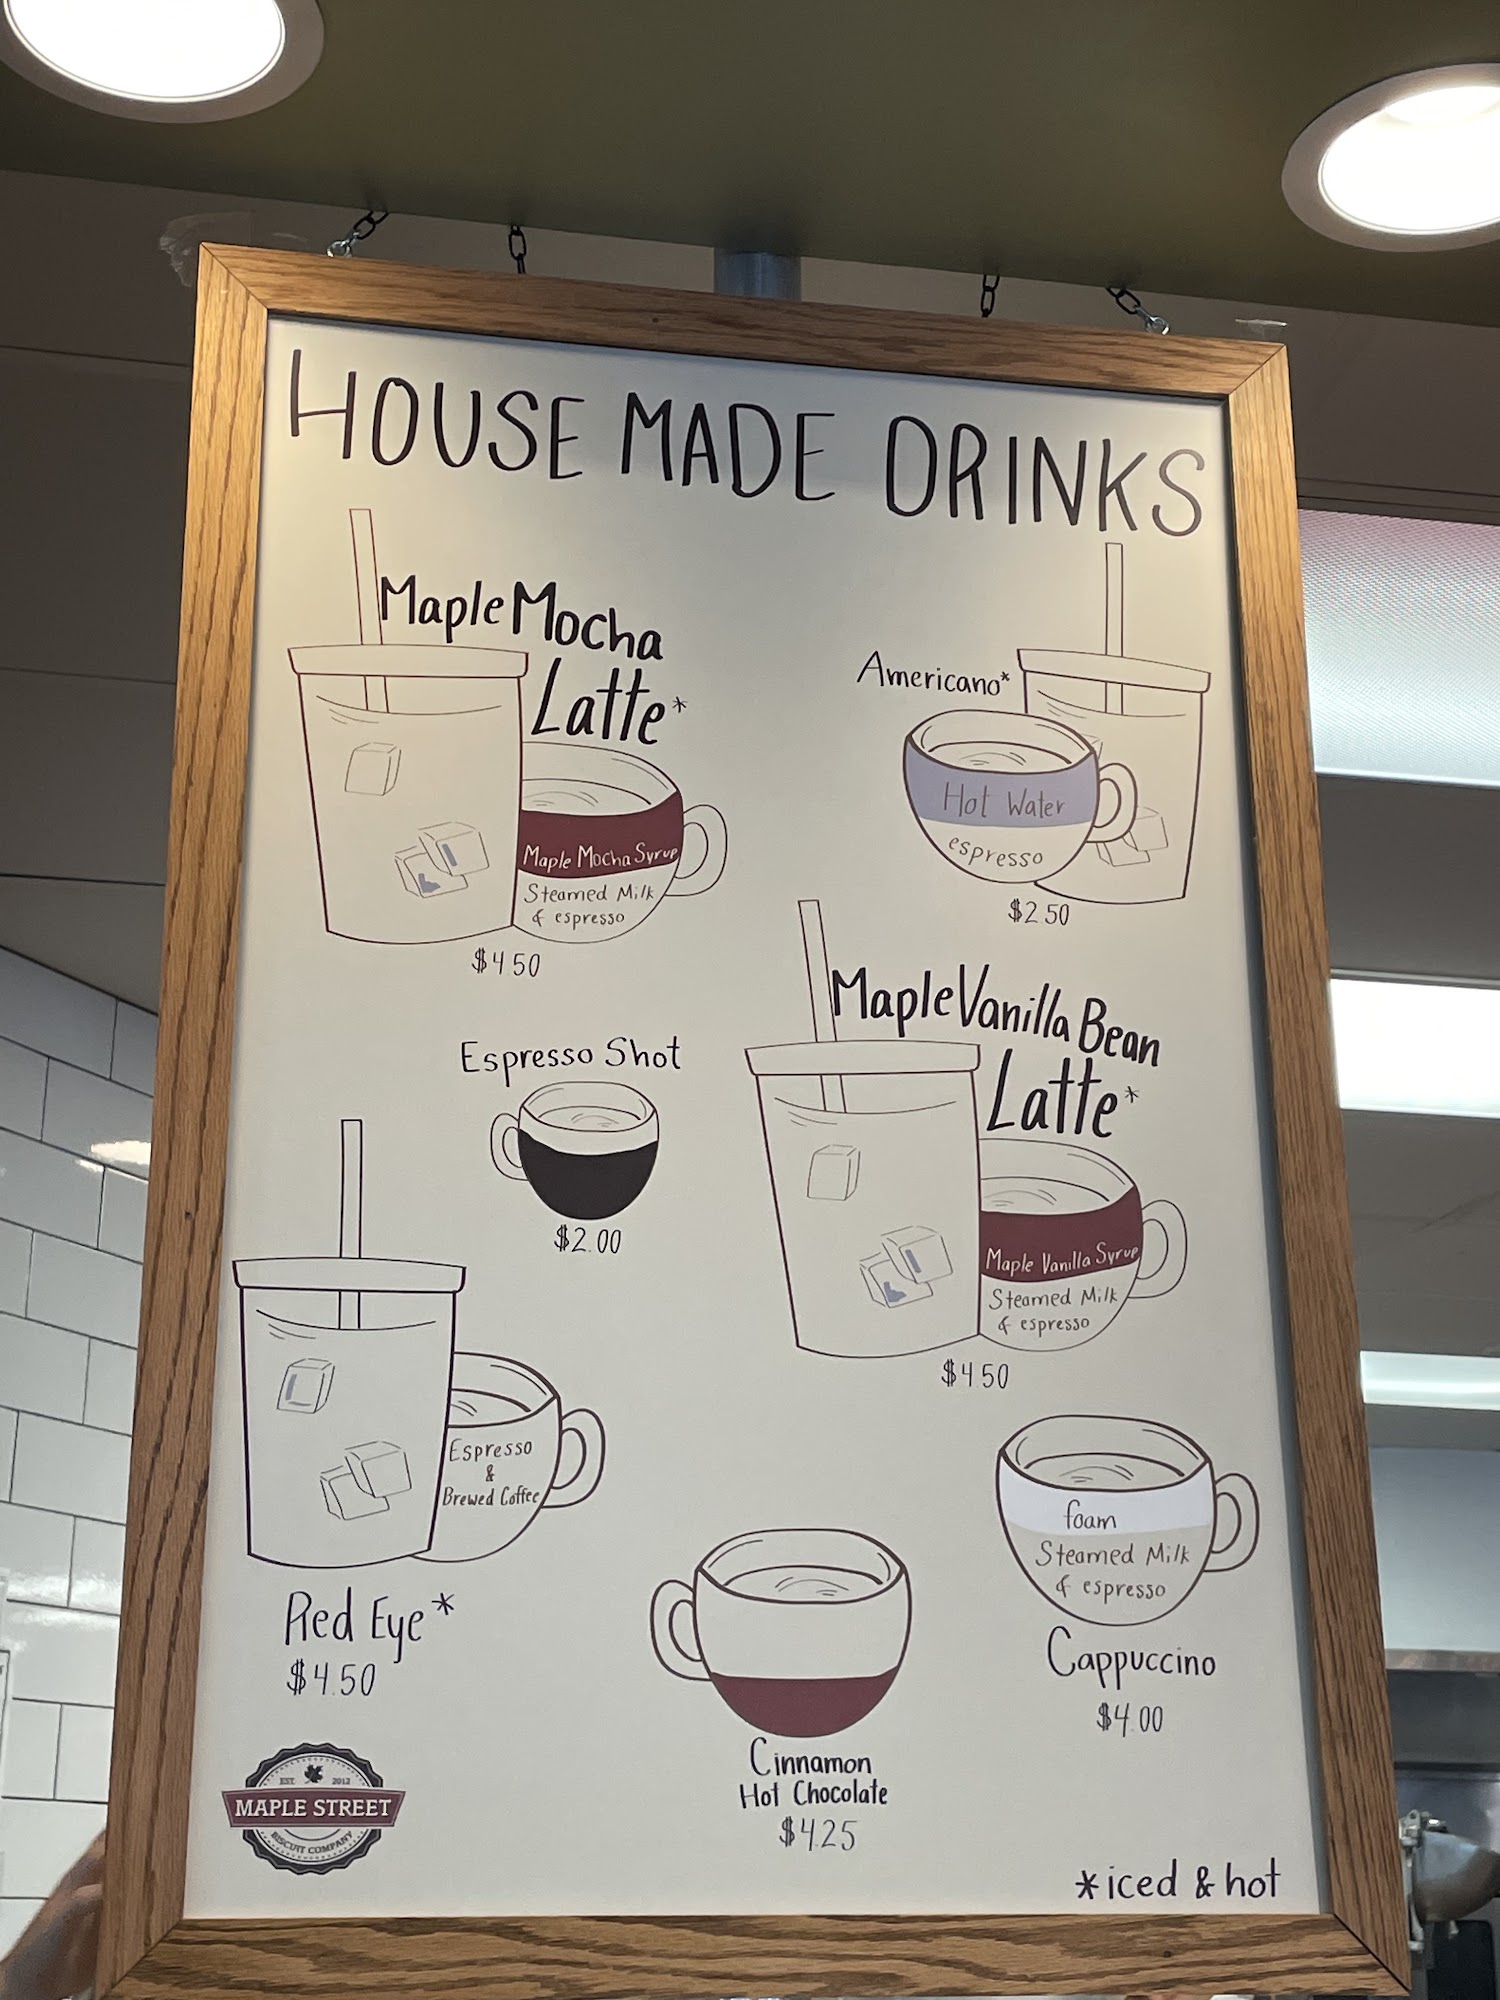 HOUSE MADE DRINKS
Maple Mocha
Latte*
Maple Mocha Syrup
Steamed Milk
& espresso
$4.50
Americano*
Hot Water
espresso
$2.50
Espresso Shot
$2.00
Maple Vanilla Bean
Latte*
Maple Vanilla Syrup
Steamed Milk
& espresso
$4.50
Espresso
&
Brewed Coffee
Red Eye*
$4.50
foam
Steamed Milk
& espresso
Cappuccino
$4.00
Cinnamon
Hot Chocolate
$4.25
EST. 2012
MAPLE STREET
BISCUIT COMPANY
*iced & hot